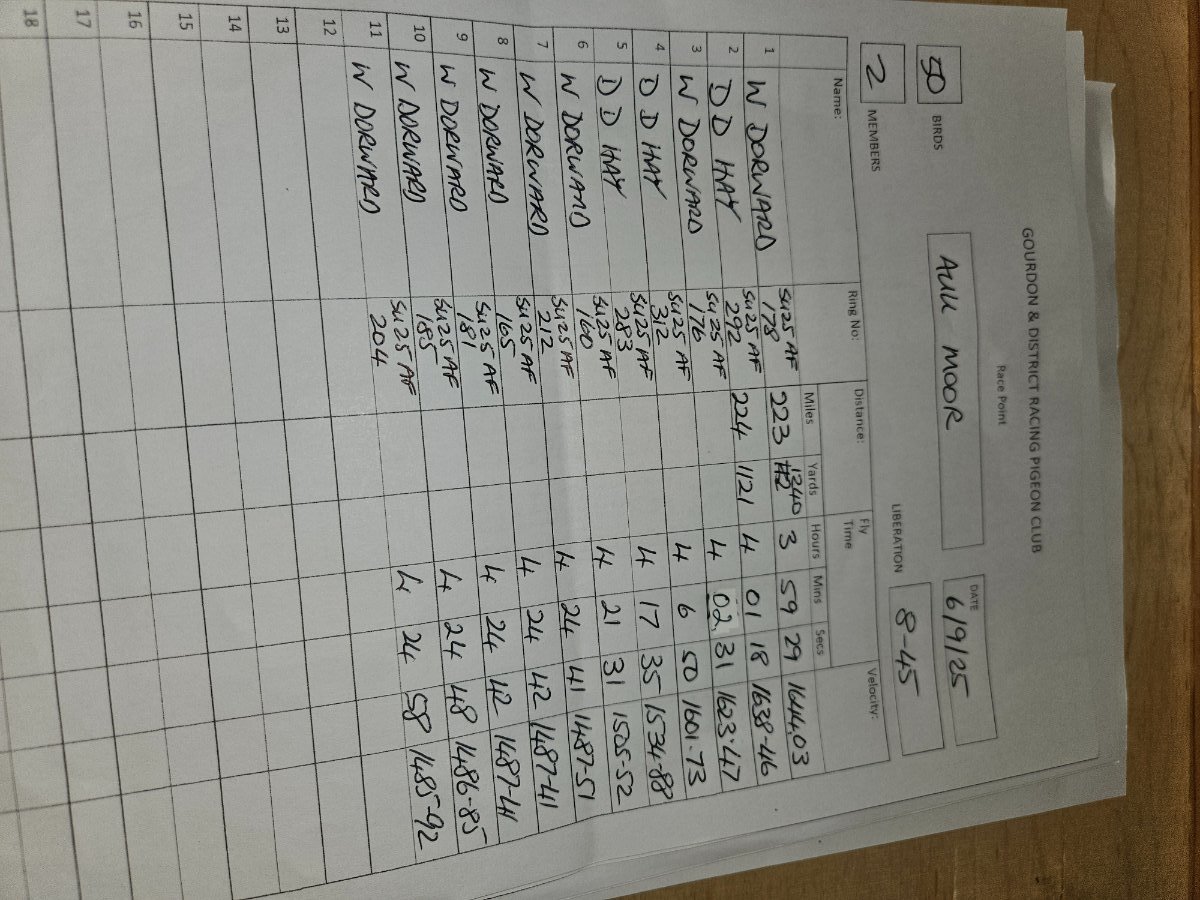 GOURDON & DISTRICT RACING PIGEON CLUB
Race Point
DATE
50 BIRDS AULL MOOR 6/9/25
LIBERATION
2 MEMBERS 8-45
Name: Ring No: Distance: Fly Time Velocity:
Miles Yards Hours Mins Secs
1 W DORWARD SU25 AF 178 223 1340 3 59 29 1644.03
2 D D HAY SU25 AF 292 224 1121 4 01 18 1638-46
3 W DORWARD SU25 AF 176 4 02 31 1623-47
4 D D HAY SU25 AF 312 4 6 50 1601-73
5 D D HAY SU25 AF 283 4 17 35 1534-88
6 W DORWARD SU25 AF 160 4 21 31 1505-52
7 W DORWARD SU25 AF 212 4 24 41 1487-51
8 W DORWARD SU25 AF 165 4 24 42 1487-41
9 W DORWARD SU25 AF 181 4 24 42 1487-41
10 W DORWARD SU25 AF 185 4 24 48 1486-85
11 W DORWARD SU25 AF 204 4 24 58 1485-92
12
13
14
15
16
17
18